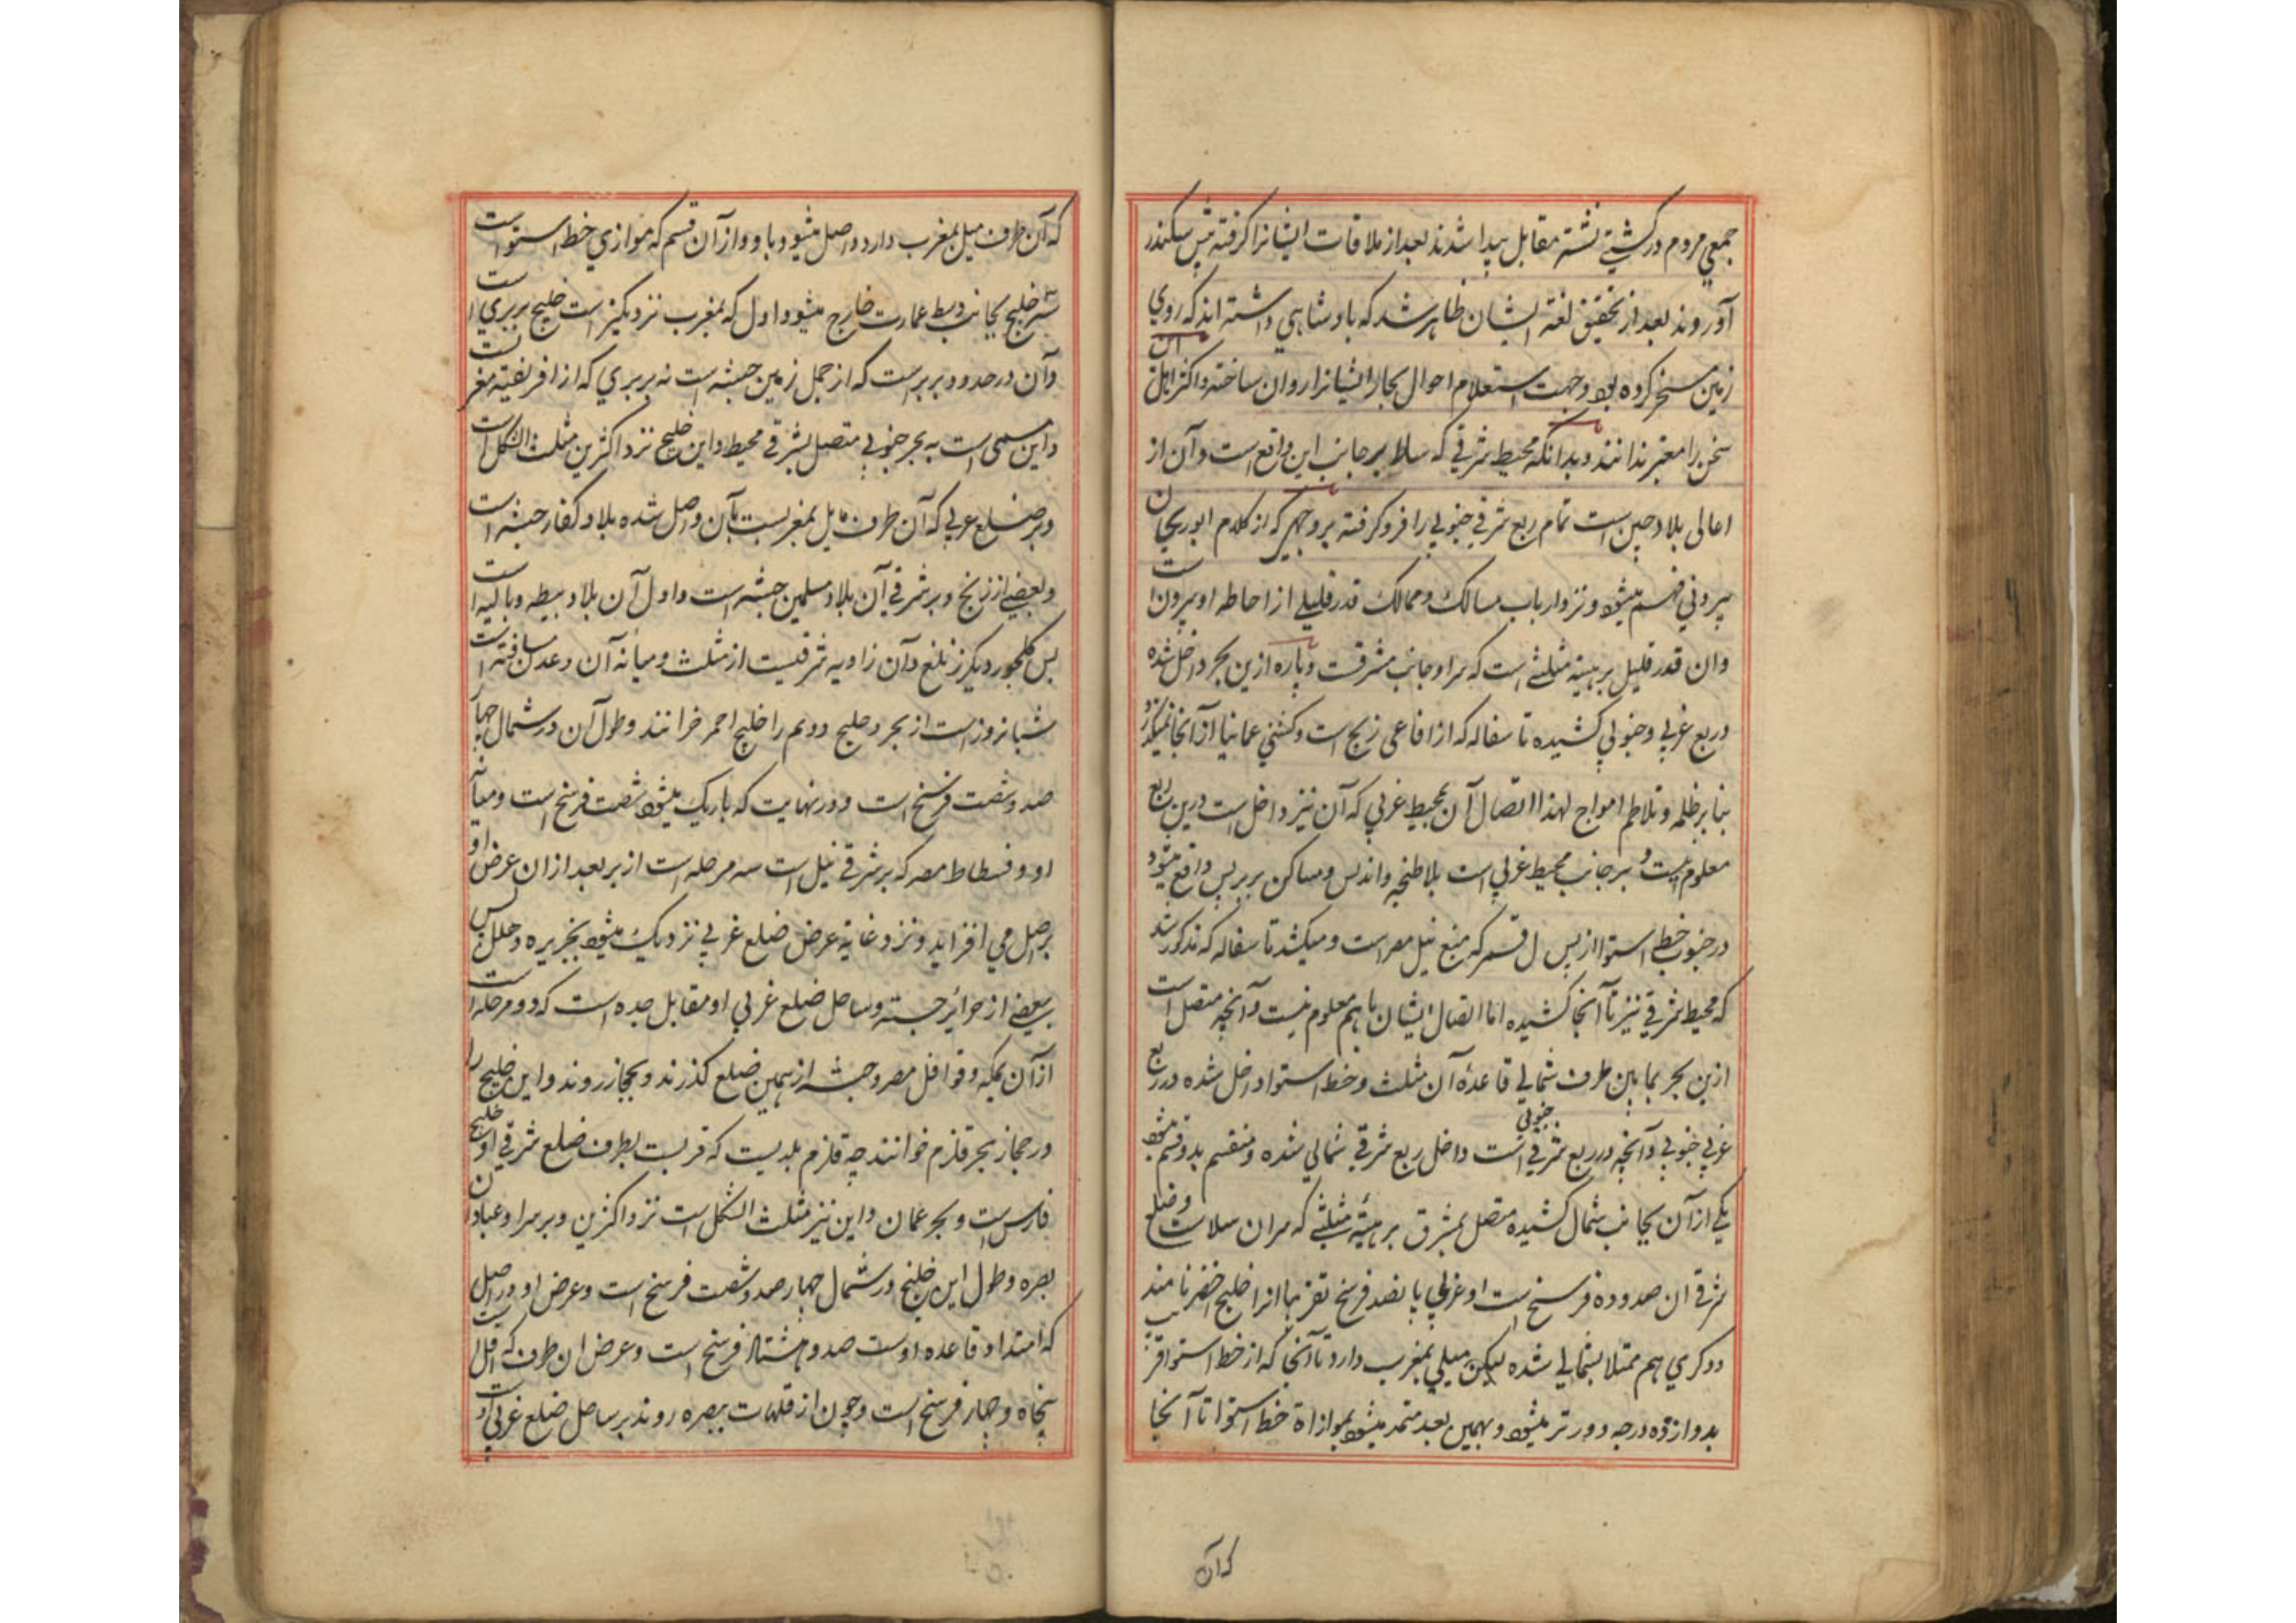 جمعي مردم در كشتي نشسته مقابل پيدا شدند بعد از ملاقات ايشانرا كرفته پيش سكندر
آوردند بعد از تحقيق لغة ايشان ظاهر شد كه پادشاهي داشته اند كه روي
زمين مسخر كرده بود و جهت استعلام احوال بحار ايشانرا روان ساخته و اكثر اهل آن
سخن را معتبر ندانند و بدانكه محيط شرقي كه سلا بر جانب اين واقع است و آن از
اعالى بلاد چين است تمام ربع شرقي جنوبي را فرو كرفته بر وجهي كه از كلام ابو ريحان
بيروني فهم ميشود و نزد ارباب مسالك و ممالك قدر قليلي از احاطه او بيرون است
وان قدر قليل بر هيئة مثلثي است كه سر او جانب مشرقست و پاره ازين بحر داخل شده
در ربع غربي و جنوبي كشيده تا سفاله كه از افاعى زنج است و كشتي عمانيا از آنجا نميكذرد
بنا بر ظلمه و تلاطم امواج لهذا اتصال آن بمحيط غربي كه آن نيز داخل است درين ربع
معلوم نيست و بر جانب محيط غربي است بلا طنجه و اندلس و مساكن بربر پس واقع ميشود
در جنوب خط استوا از پس جبال قمر كه منبع نيل مصر است و ميكشد تا سفاله كه مذكور شد
كه محيط شرقي نيز تا آنجا كشيده اما اتصال ايشان با هم معلوم نيست و آنچه متصل است
ازين بحر بما بين طرف شمالي قاعدهٔ آن مثلث و خط استوا داخل شده در ربع
غربي جنوبي و آنچه در ربع شرقي جنوبي است داخل ربع شرقي شمالي شده و منقسم بدو قسم ميشود
يكي از آن بجانب شمال كشيده متصل بمشرق بر هيئة مثلثي كه سر ان سلاست و ضلع
شرقي ان صد و ده فرسخ است و غربي پانصد فرسخ تقريبا انرا خليج اخضر نامند
و دكري هم ممتلا بشمالي شده ليكن ميلي بمغرب دارد تا آنجا كه از خط استوا قريب
بدوازده درجه دورتر ميشود و بهمين بعد ممتد ميشود بموازاة خط استوا تا آنجا
كه آن
كه آن طرف ميل بمغرب دارد و اصل ميشود باو و از آن قسم كه موازي خط استواست
سه خليج بجانب وسط عمارت خارج ميشود اول كه بمغرب نزديكتر است خليج بربري است
و آن در حدود بربرست كه از جمل زمين حبشه است نه بربري كه از افريقيه مغربست
و اين مسمى است به بحر جنوبي متصل بشرقي محيط و اين خليج نزد اكثرين مثلث الشكل است
و بر ضلع غربي كه آن طرف مايل بمغربست بآن و اصل شده بلاد كفار حبشه است
و بعضي از زنج و بر شرقي آن بلاد مسلمين حبشه است و اول آن بلاد
پس ديكر زيلع و آن زاويه شرقيست از مثلث و ميانه آن و عدن مسافة است
شبانروز است از بحر و خليج دويم را خليج احمر خوانند و طول آن در شمال چهار
صد و شصت فرسخ است و در نهايت كه باريك ميشود شصت فرسخ است و ميانه
او و فسطاط مصر كه بر شرقي نيل است سه مرحله است از بر بعد از ان عرض او
بر اصل مي افزايد و نزد غاية عرض ضلع غربي نزديك ميشود بجزيره
ببعضي از جزائر حبشه و ساحل ضلع غربي او مقابل جده است كه دو مرحله است
از آن بمكه و قوافل مصر و حبشه از همين ضلع كذرند و بحجاز روند و اين خليج را
در حجاز بحر قلزم خوانند چه قلزم بلديست كه قريبست بطرف ضلع شرقي او خليج
فارس است و بحر عمان و اين نيز مثلث الشكل است نزد اكثرين و بر سر او عبادان
بصره و طول اين خليج در شمال چهار صد و شصت فرسخ است و عرض او در اصل
كه امتداد قاعده اوست صد و هشتاد فرسخ است و عرض ان طرف كه اقل است
پنجاه و چهار فرسخ است و چون از قلهات ببصره روند بر ساحل ضلع غربي او